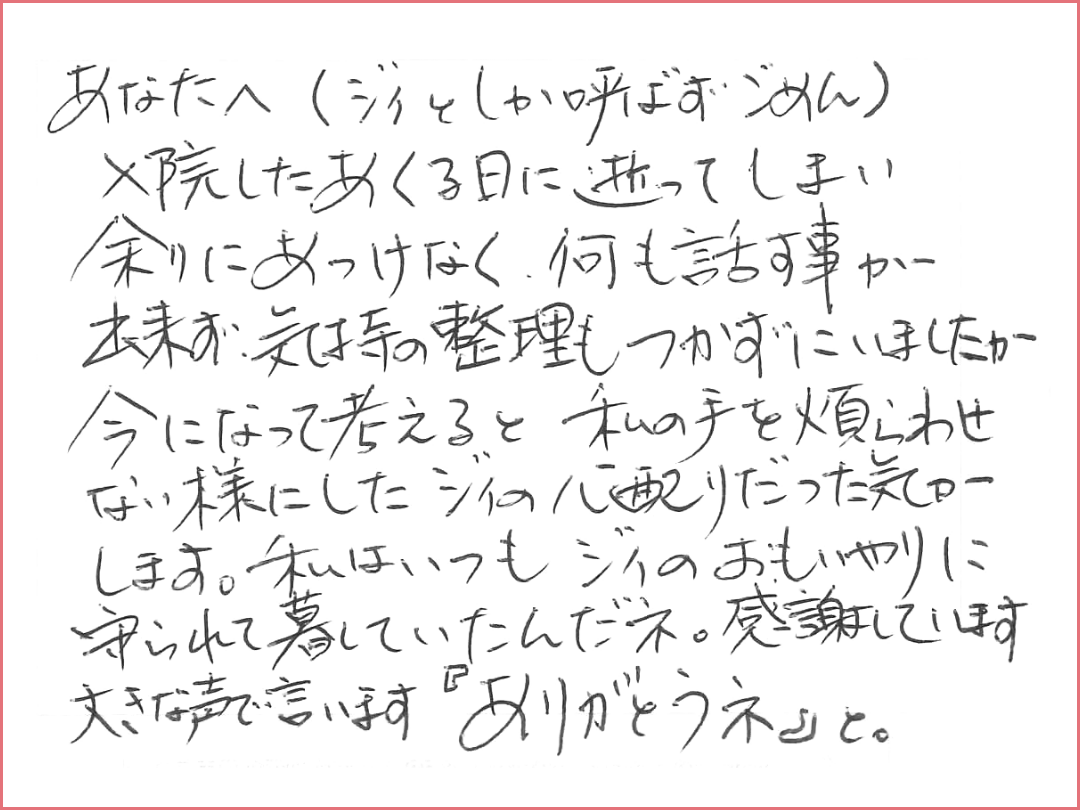 あなたへ（ジィとしか呼ばず ごめん）
入院したあくる日に逝ってしまい
余りにあっけなく、何も話す事が
出来ず、気持の整理もつかずにいましたが
今になって考えると 私の手を煩らわせ
ない様にした ジィの心配りだった気が
します。私はいつも ジィのおもいやりに
守られて暮していたんだネ。感謝しています
大きな声で言います『ありがとうネ』と。